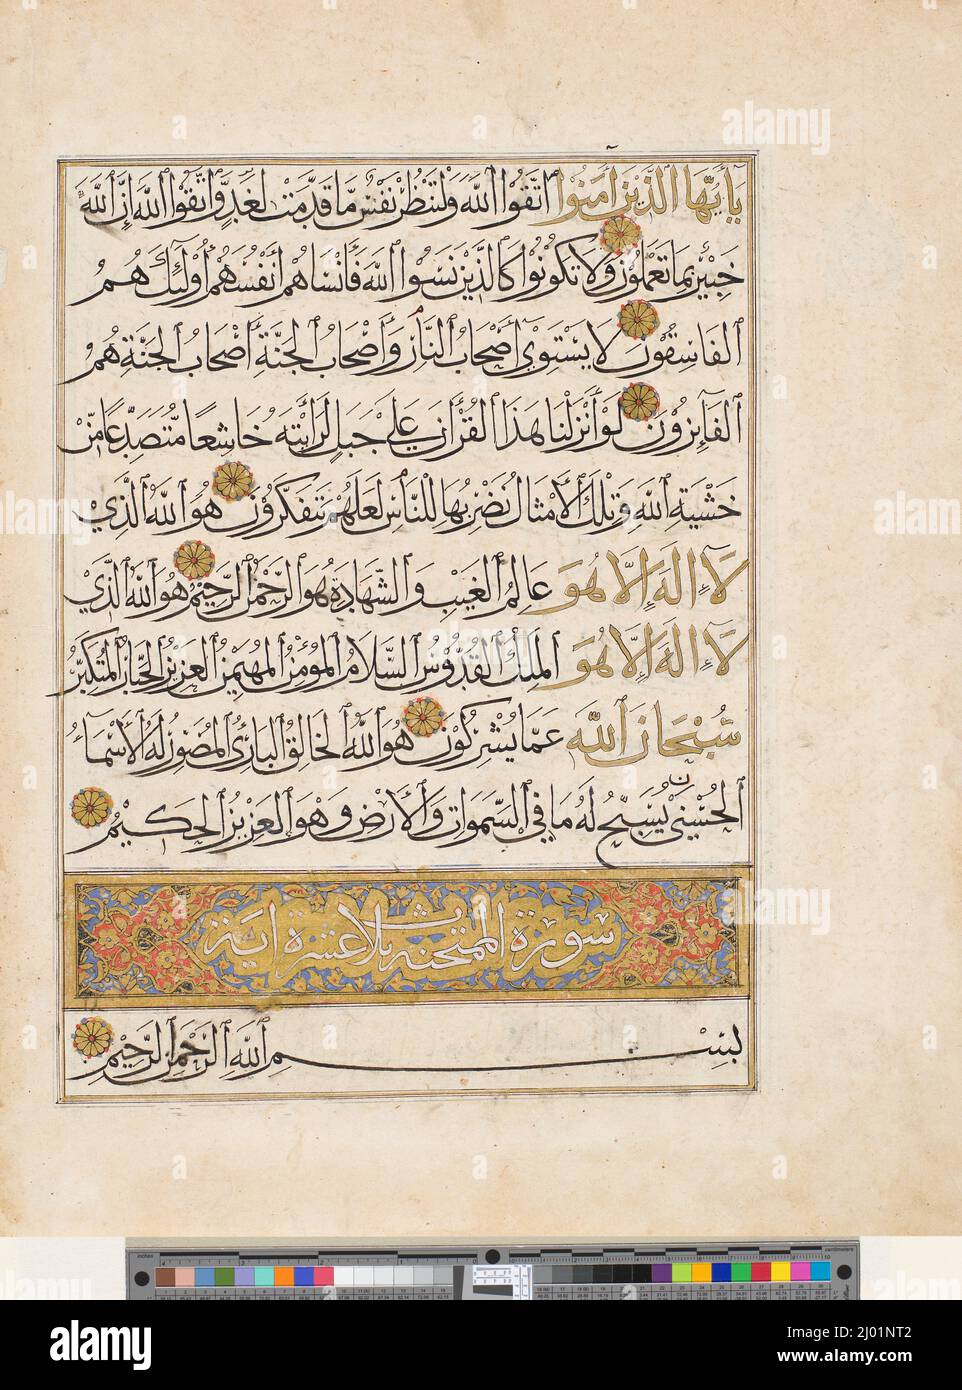 يَا أَيُّهَا الَّذِينَ آمَنُوا اتَّقُوا اللَّهَ وَلْتَنظُرْ نَفْسٌ مَا قَدَّمَتْ لِغَدٍ وَاتَّقُوا اللَّهَ إِنَّ اللَّهَ
خَبِيرٌ بِمَا تَعْمَلُونَ وَلَا تَكُونُوا كَالَّذِينَ نَسُوا اللَّهَ فَأَنْسَاهُمْ أَنْفُسَهُمْ أُولَئِكَ هُمُ
الْفَاسِقُونَ لَا يَسْتَوِي أَصْحَابُ النَّارِ وَأَصْحَابُ الْجَنَّةِ أَصْحَابُ الْجَنَّةِ هُمُ
الْفَائِزُونَ لَوْ أَنْزَلْنَا هَذَا الْقُرْآنَ عَلَى جَبَلٍ لَرَأَيْتَهُ خَاشِعًا مُتَصَدِّعًا مِنْ
خَشْيَةِ اللَّهِ وَتِلْكَ الْأَمْثَالُ نَضْرِبُهَا لِلنَّاسِ لَعَلَّهُمْ يَتَفَكَّرُونَ هُوَ اللَّهُ الَّذِي
لَا إِلَهَ إِلَّا هُوَ عَالِمُ الْغَيْبِ وَالشَّهَادَةِ هُوَ الرَّحْمَنُ الرَّحِيمُ هُوَ اللَّهُ الَّذِي
لَا إِلَهَ إِلَّا هُوَ الْمَلِكُ الْقُدُّوسُ السَّلَامُ الْمُؤْمِنُ الْمُهَيْمِنُ الْعَزِيزُ الْجَبَّارُ الْمُتَكَبِّرُ
سُبْحَانَ اللَّهِ عَمَّا يُشْرِكُونَ هُوَ اللَّهُ الْخَالِقُ الْبَارِئُ الْمُصَوِّرُ لَهُ الْأَسْمَاءُ
الْحُسْنَى يُسَبِّحُ لَهُ مَا فِي السَّمَوَاتِ وَالْأَرْضِ وَهُوَ الْعَزِيزُ الْحَكِيمُ
سورة الممتحنة ثلاث عشرة آية
بِسْمِ اللَّهِ الرَّحْمَنِ الرَّحِيمِ
inches
centimeters
alamy
Image ID: 2J01NT2
www.alamy.com